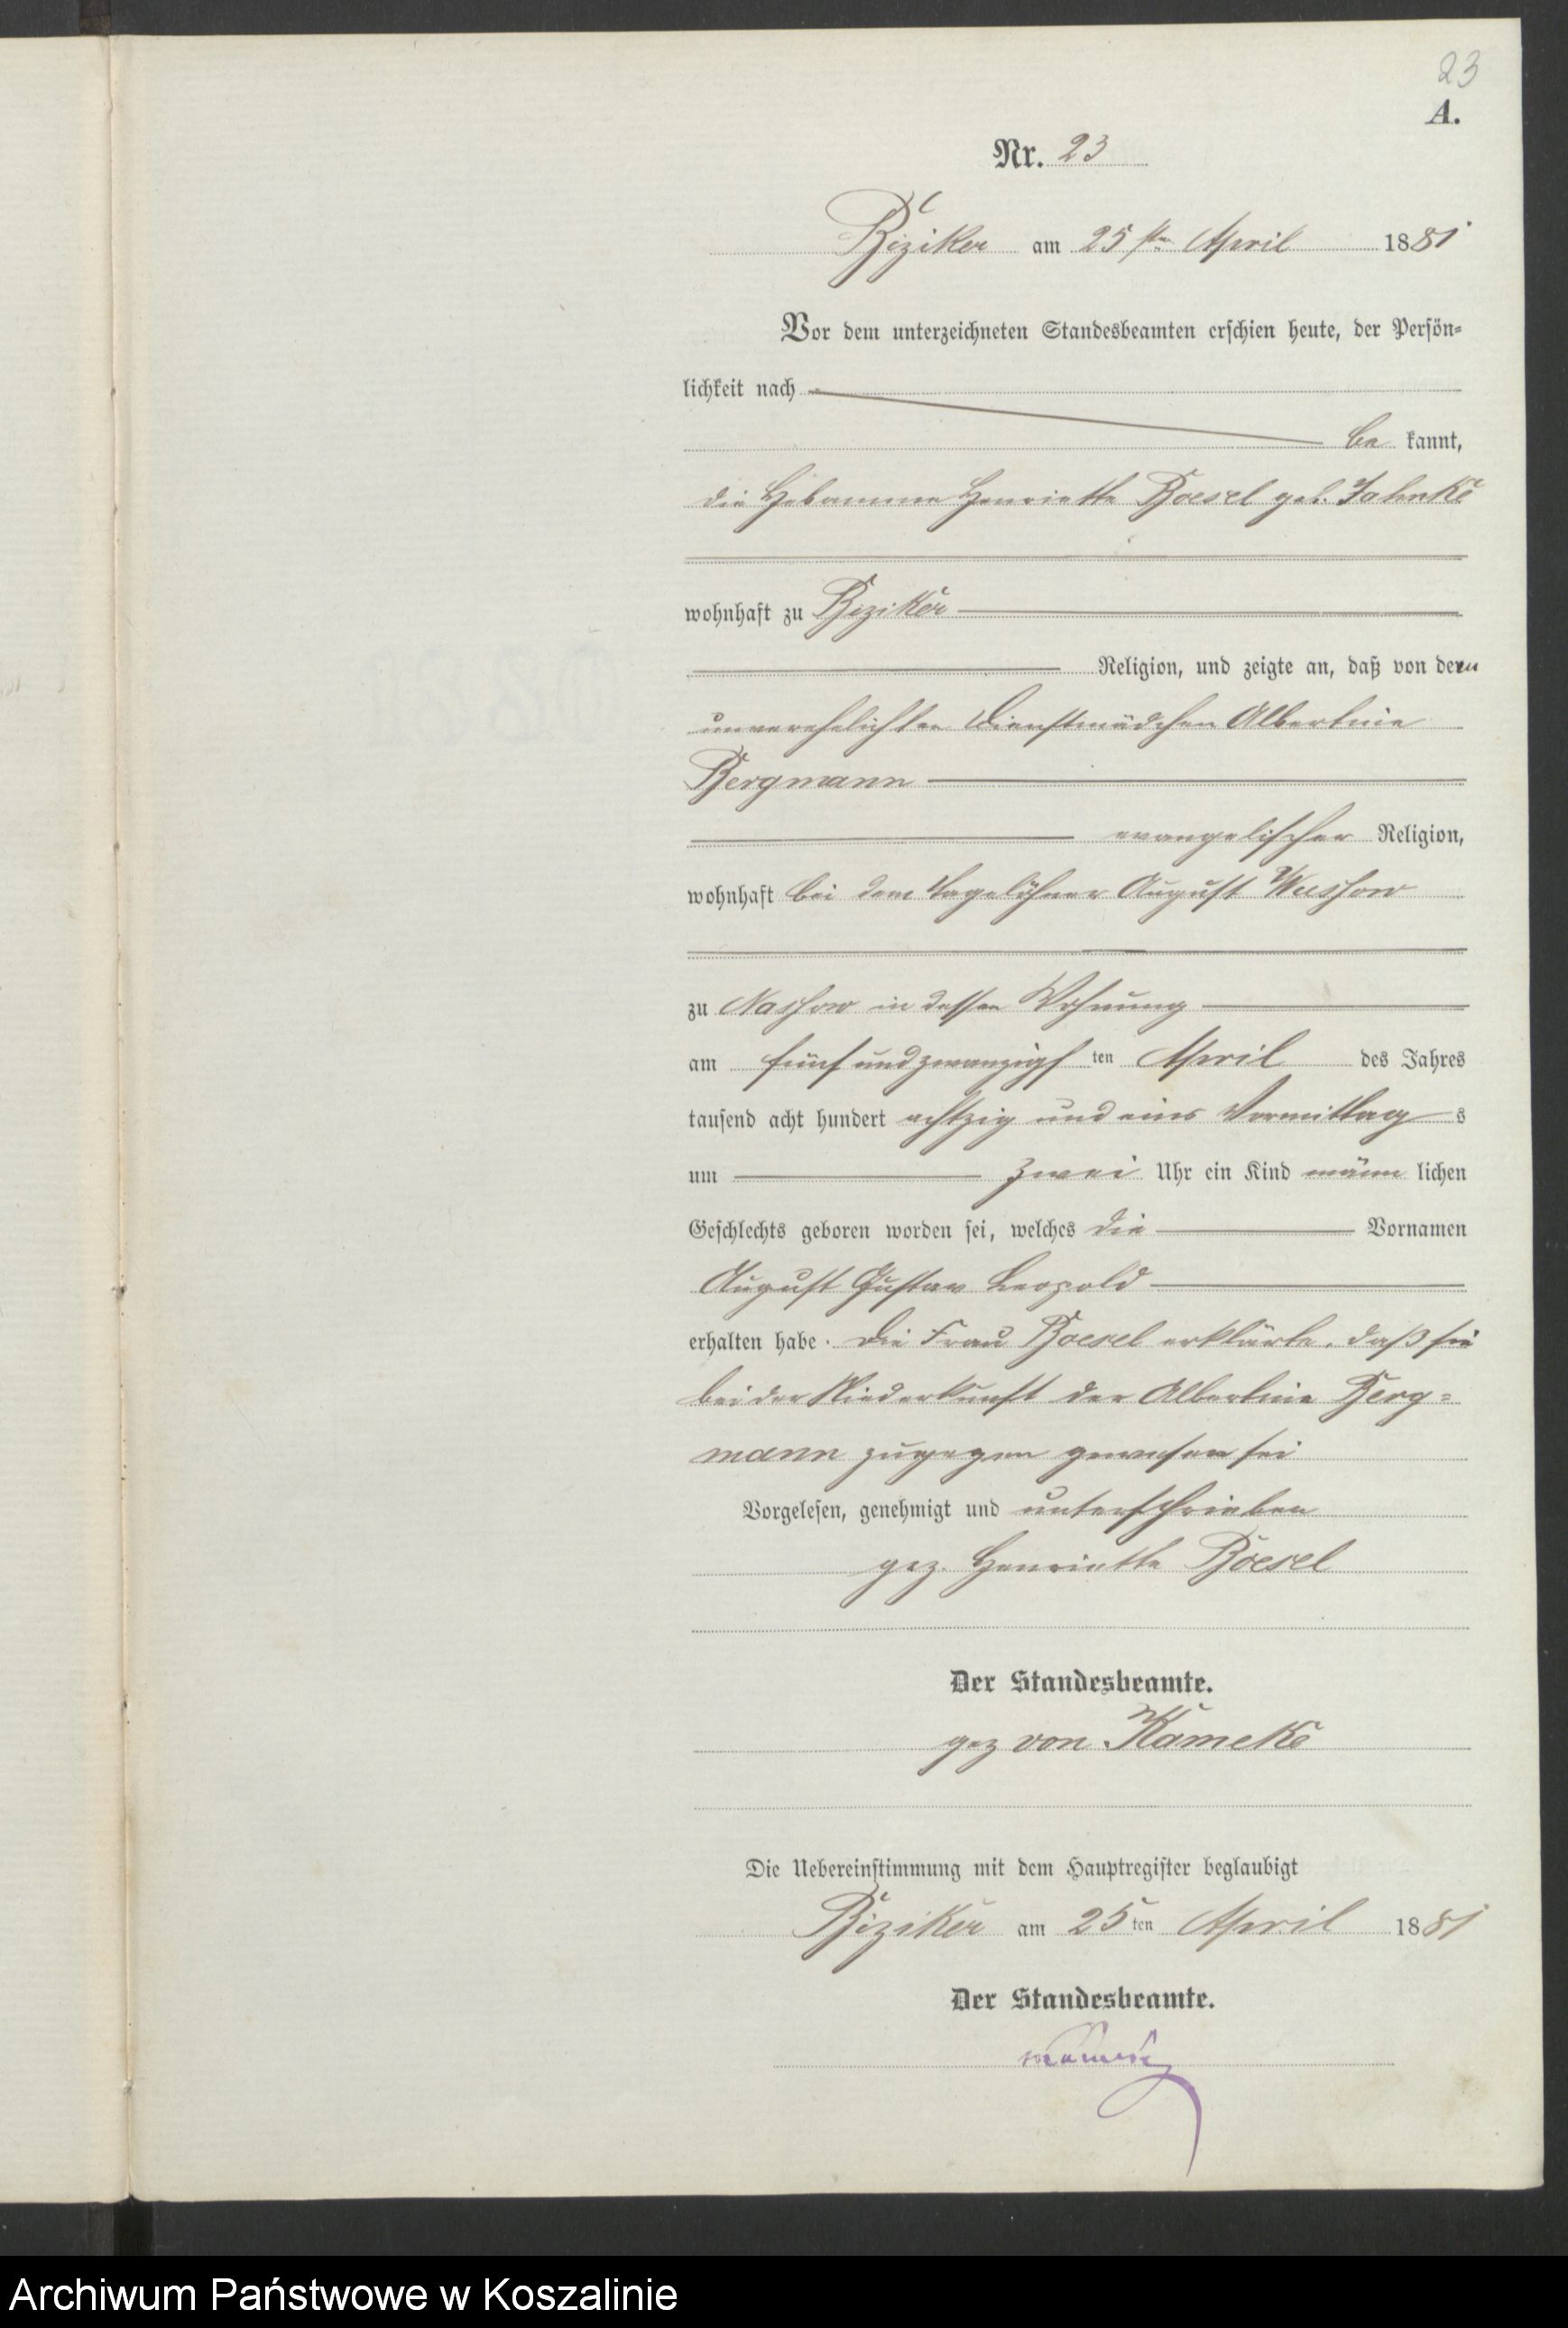 23
A.
Nr. 23
Biziker am 25 ten April 1881
Vor dem unterzeichneten Standesbeamten erschien heute, der Persön-
lichkeit nach
be kannt,
die Hebamme Henriette Boesel geb. Jahnke
wohnhaft zu Biziker
Religion, und zeigte an, daß von dem
unverehelichten Dienstmädchen Albertine
Bergmann
evangelischer Religion,
wohnhaft bei dem Tagelöhner August Wussow
zu Nassow in dessen Wohnung
am fünf und zwanzigs ten April des Jahres
tausend acht hundert achtzig und eins Vormittag s
um zwei Uhr ein Kind männ lichen
Geschlechts geboren worden sei, welches die Vornamen
August Gustav Leopold
erhalten habe. Die Frau Boesel erklärte, daß sie
bei der Niederkunft der Albertine Berg=
mann zugegen gewesen sei
Vorgelesen, genehmigt und unterschrieben
gez. Henriette Boesel
Der Standesbeamte.
gez von Kameke
Die Uebereinstimmung mit dem Hauptregister beglaubigt
Biziker am 25 ten April 1881
Der Standesbeamte.
vKameke
Archiwum Państwowe w Koszalinie